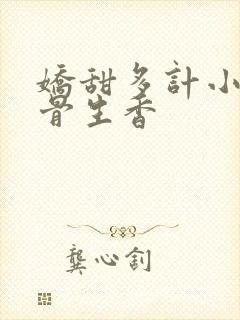 嬌甜多計小
骨生香
龔心釗